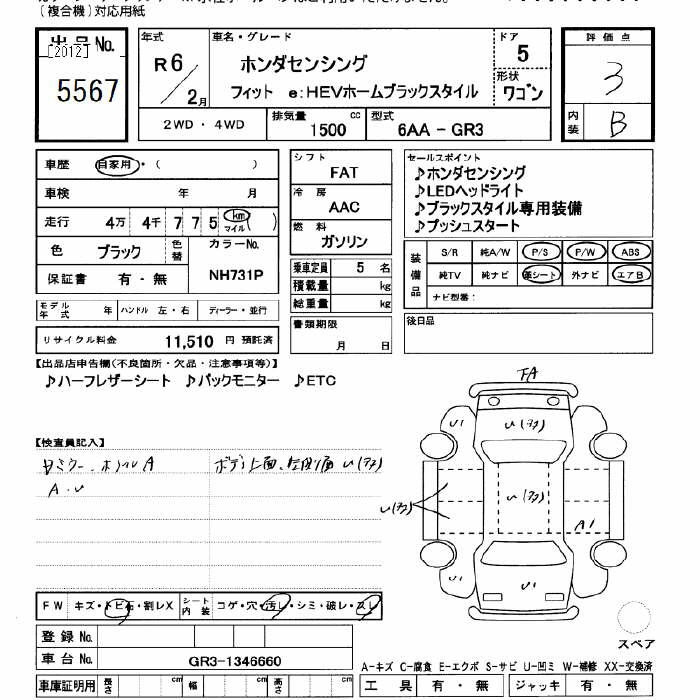 (複合機)対応用紙
出品No.
[2012]
5567
年式
R6/2月
車名・グレード
ホンダセンシング
フィット e:HEVホームブラックスタイル
ドア
5
形状
ワゴン
評価点
3
内装
B
2WD・4WD
排気量 1500 cc
型式 6AA-GR3
車歴 自家用・( )
車検 年 月
走行 4万 4千 7 7 5 km マイル ( )
色 ブラック 色替 カラーNo.
保証書 有・無 NH731P
シフト
FAT
冷房
AAC
燃料
ガソリン
乗車定員 5 名
積載量 kg
総重量 kg
セールスポイント
♪ホンダセンシング
♪LEDヘッドライト
♪ブラックスタイル専用装備
♪プッシュスタート
装備品
S/R 純A/W P/S P/W ABS
純TV 純ナビ 革シート 外ナビ エアB
ナビ型番:
モデル年式 年 ハンドル 左・右 ディーラー・並行
リサイクル料金 11,510 円 預託済
書類期限
月 日
後日品
【出品店申告欄(不良箇所・欠品・注意事項等)】
♪ハーフレザーシート ♪バックモニター ♪ETC
【検査員記入】
A
A・U
ボディ上面、左側面 U
FA
U1
U
U
U
A1
U1
U1
FW キズ・トビ石・割レX シート内装 コゲ・穴・汚レ・シミ・破レ・スレ
登録No.
車台No. GR3-1346660
スペア
A-キズ C-腐食 E-エクボ S-サビ U-凹ミ W-補修 XX-交換済
車庫証明用 長さ cm 幅 cm 高さ cm
工具 有・無 ジャッキ 有・無